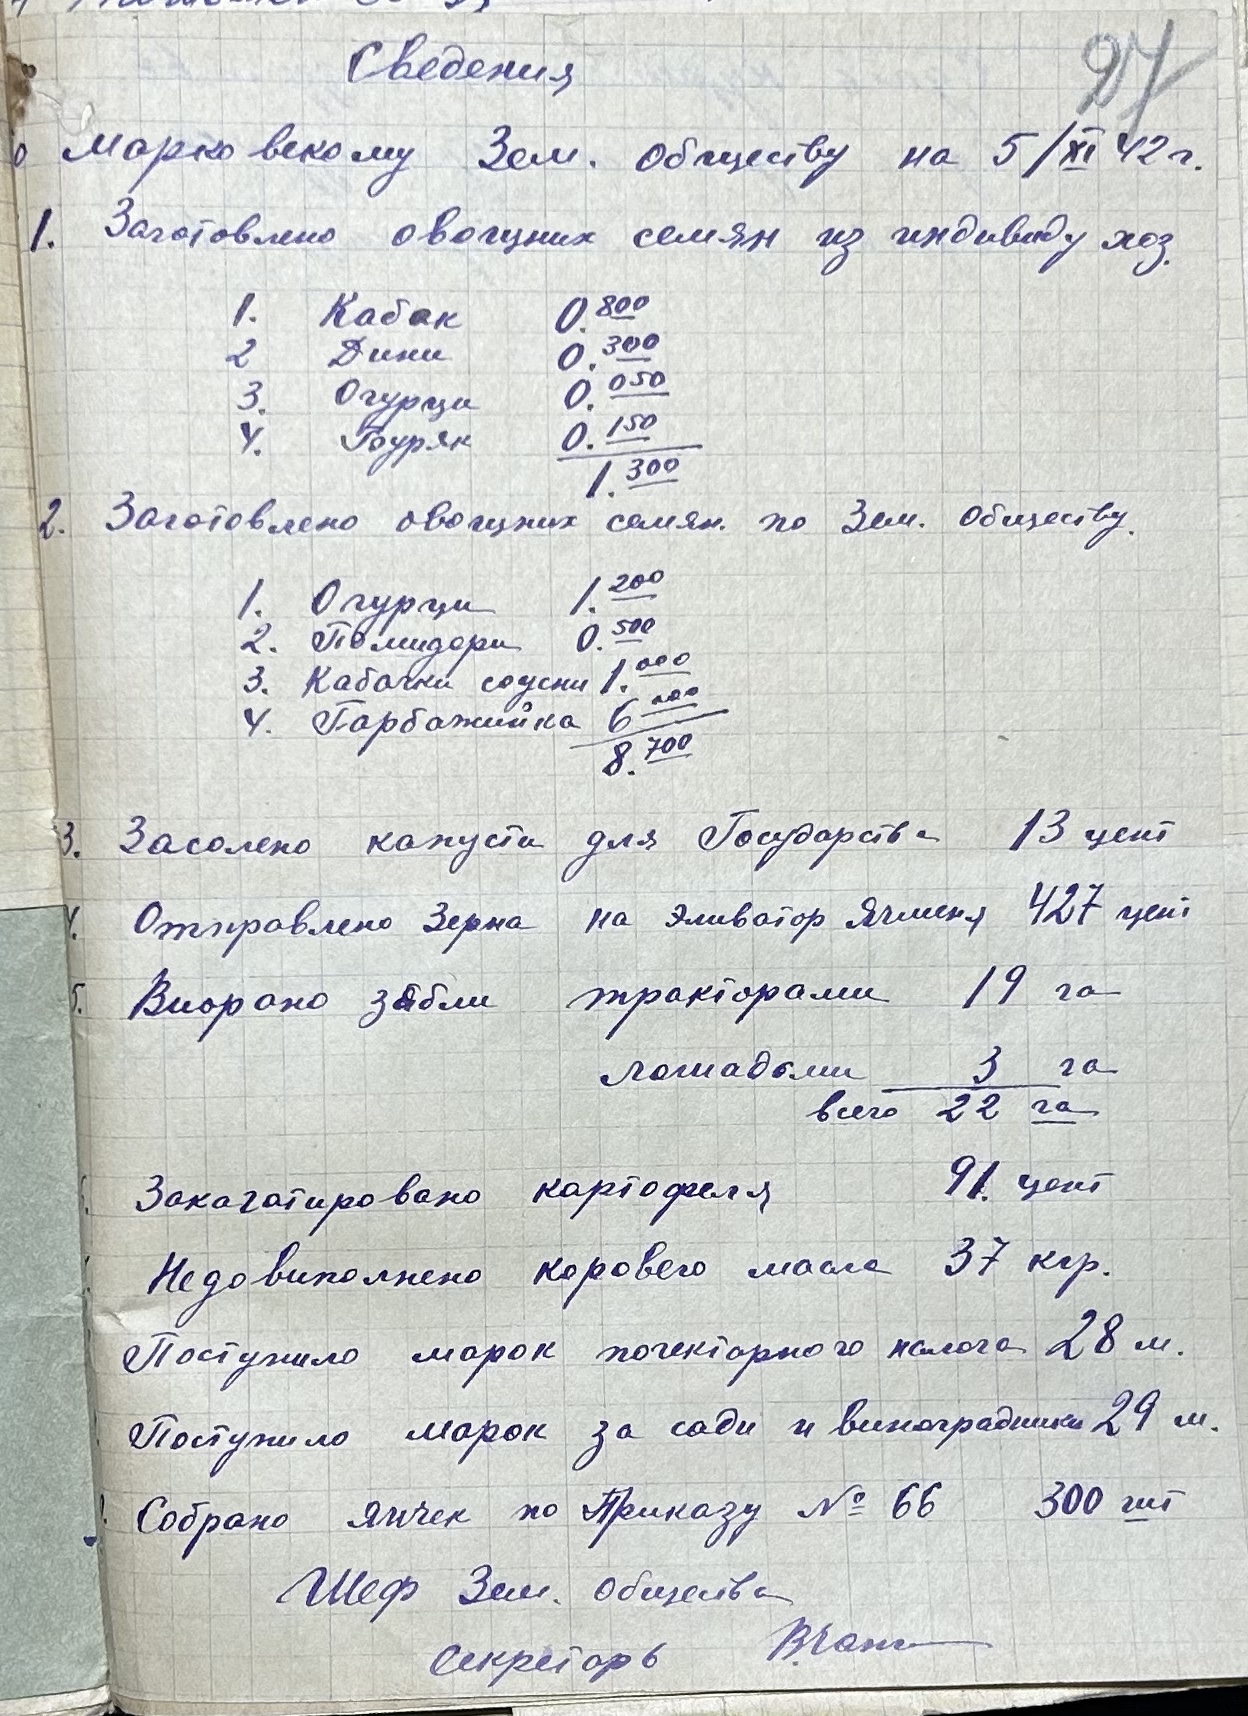 27
Сведения
о Марковскому Зем. обществу на 5/XI 42 г.
1. Заготовлено овощних семян из индивиду хоз.
1. Кабак 0.800
2 Дини 0.300
3. Огурци 0.050
4. Буряк 0.150
1.300
2. Заготовлено овощних семян. по Зем. обществу.
1. Огурци 1.200
2. Помидори 0.500
3. Кабачки соусни 1.000
4. Гарбажийка 6 000
8.700
3. Засолено капусти для Государства 13 цент
4. Отправлено Зерна на эливатор Ячменя 427 цент
5. Виорано зябли тракторами 19 га
лошадьми 3 га
всего 22 га
Закагатировано картофеля 91. цент
Недовиполнено коровего масла 37 кгр.
Поступило марок погектарного налога 28 м.
Поступило марок за сади и виноградники 29 м.
Собрано яичек по Приказу № 66 300 шт
Шеф Зем. общества
Секреторь